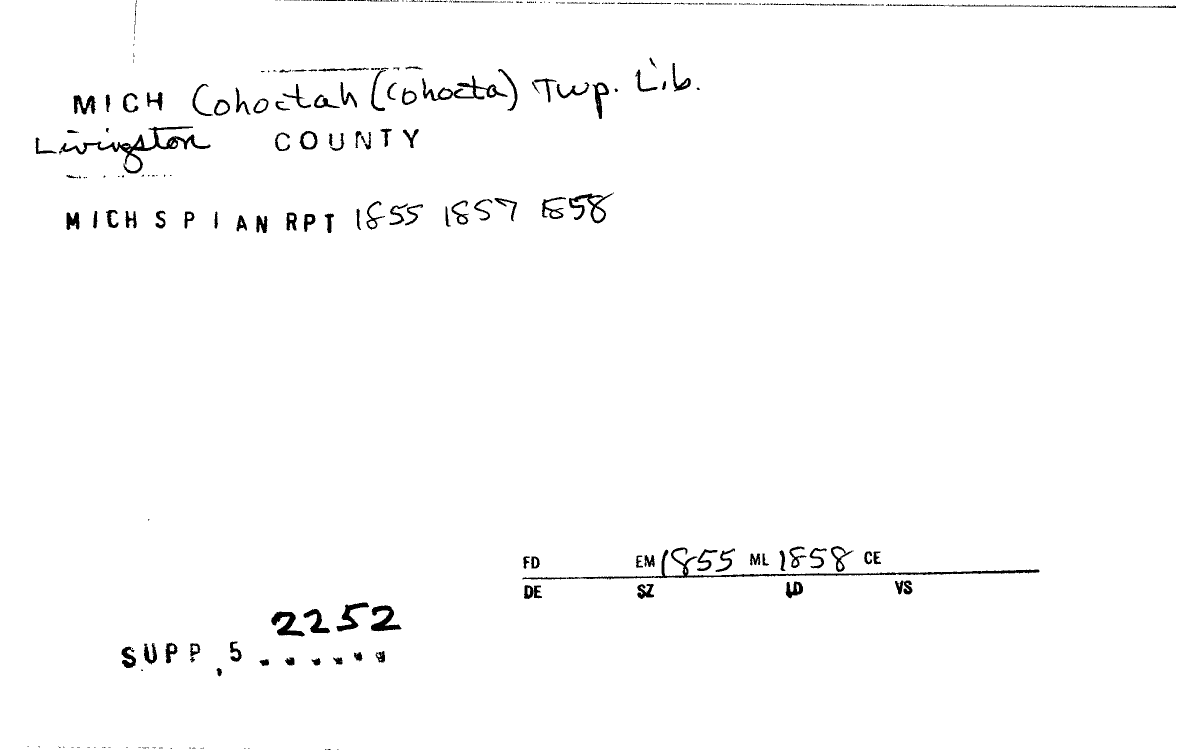 MICH Cohoctah (Cohocta) Twp. Lib.
Livingston COUNTY
MICH S P I AN RPT 1855 1857 1858
FD EM 1855 ML 1858 CE
DE SZ LD VS
2252
SUPP, 5 ......